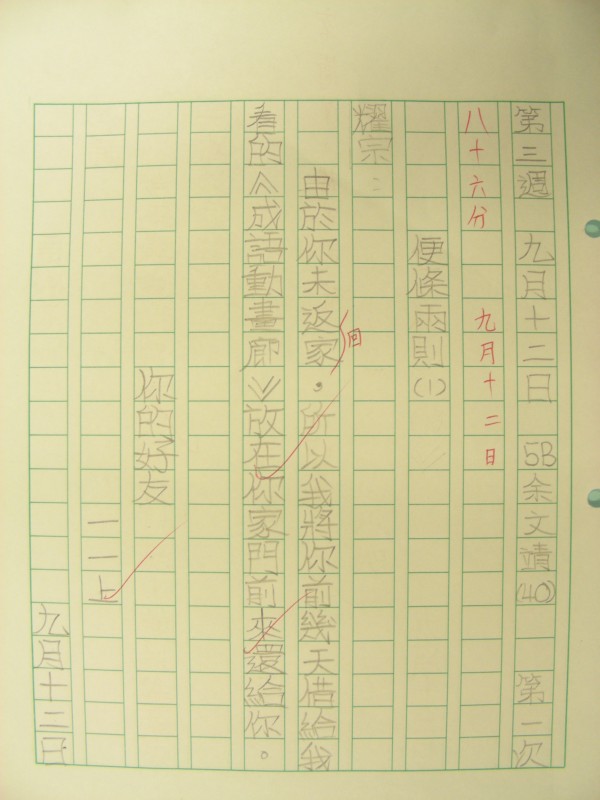 第三週 九月十二日 5B余文靖(40) 第一次
八十六分 九月十二日
便條兩則(1)
耀宗：
由於你未返家，所以我將你前幾天借給我
回
看的《成語動畫廊》放在你家門前來還給你。
你的好友
一一上
九月十二日